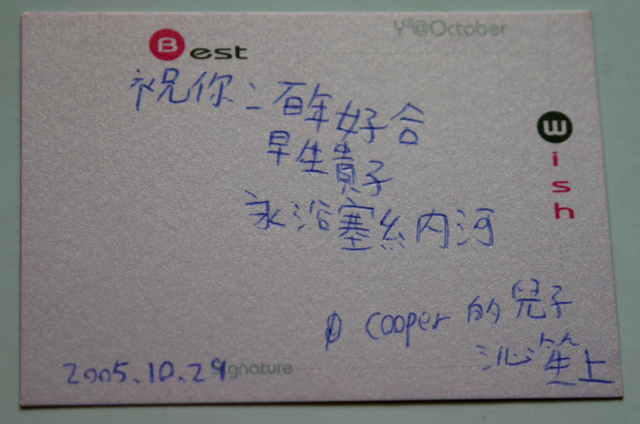 Y2@October
Best
Wish
祝你：百年好合
早生貴子
永浴塞納內河
cooper 的兒子
沁笙上
2005.10.29
Signature